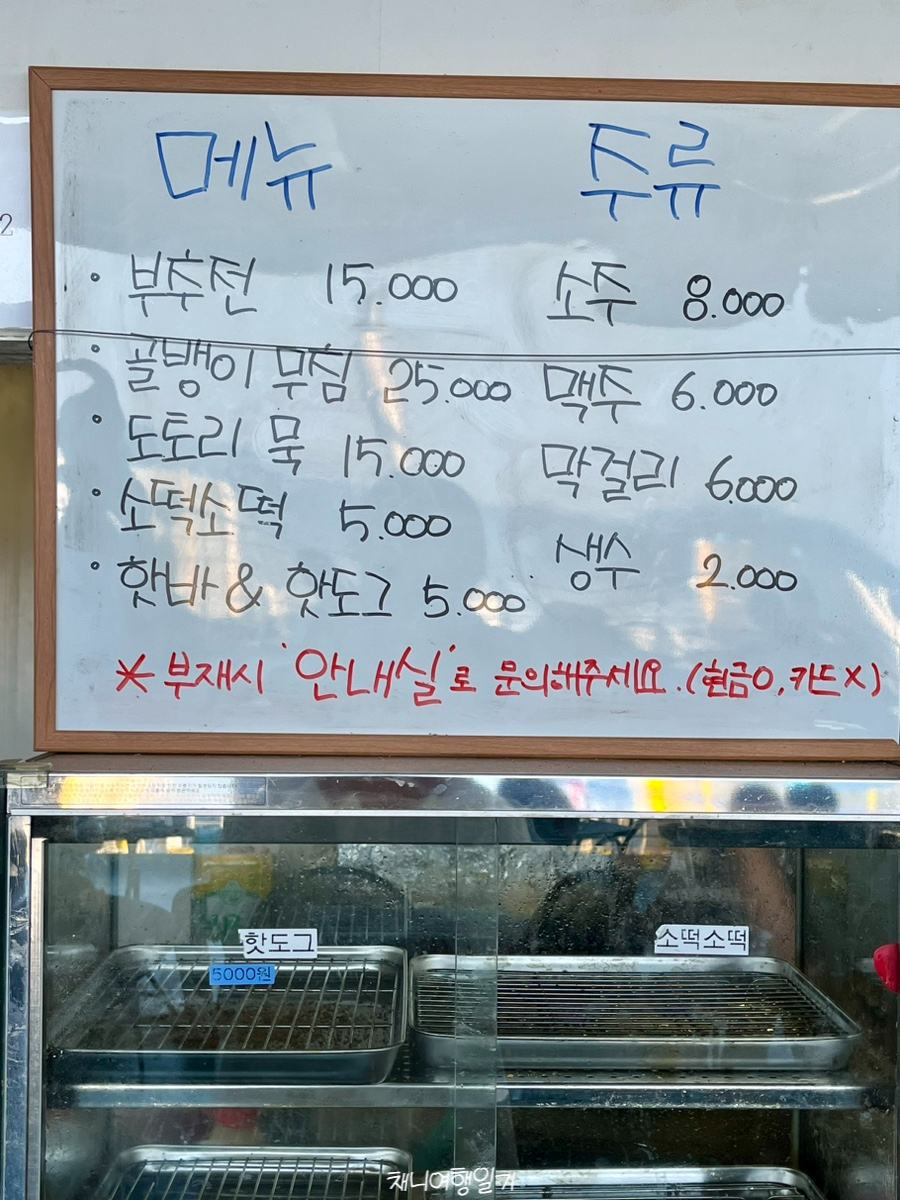 메뉴
· 부추전 15.000
· 골뱅이 무침 25.000
· 도토리 묵 15.000
· 소떡소떡 5.000
· 핫바 & 핫도그 5.000
주류
소주 8.000
맥주 6.000
막걸리 6.000
생수 2.000
* 부재시 '안내실'로 문의해주세요.(현금O, 카드X)
2
핫도그
5000원
소떡소떡
채니여행일기